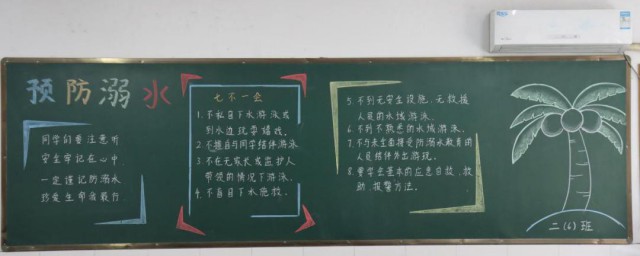 预防溺水
同学们要注意听
安全牢记在心中
一定谨记防溺水
珍爱生命者最行
七不一会
1.不私自下水游泳或
到水边玩学嬉戏。
2.不擅自与同学结伴游泳
3.不在无家长或监护人
带领的情况下游泳。
4.不盲目下水施救。
5.不到无安全设施、无救援
人员的水域游泳。
6.不到不熟悉的水域游泳。
7.不与未全面接受防溺水教育的
人员结伴外出游玩。
8.要学会基本的应急自救、救
助、报警方法。
二(6)班